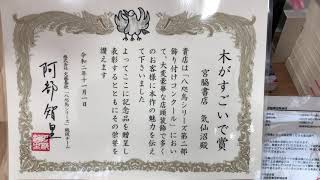 木がすごいで賞
宮脇書店 気仙沼殿
貴店は「八咫烏シリーズ第二部
飾り付けコンクール」におい
て、大変豪華な店頭装飾で多く
のお客様に本作の魅力を伝え
て下さいました
よってここに記念品を贈呈し
表彰するとともにその栄誉を
讃えます
令和二年十一月一日
阿部智里